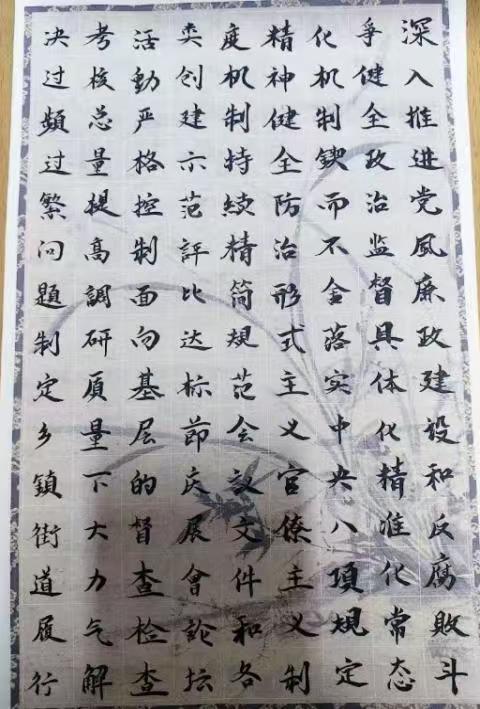 深入推進党風廉政建設和反腐敗斗
爭健全政治监督具体化精准化常态
化机制锲而不舍落实中央八項規定
精神健全防治形式主义官僚主义制
度机制持续精简規范会议文件和各
类创建示范評比达标節庆展會論坛
活動严格控制面向基层的督查检查
考核总量提高調研质量下大力气解
决过頻过繁问題制定乡鎮街道履行